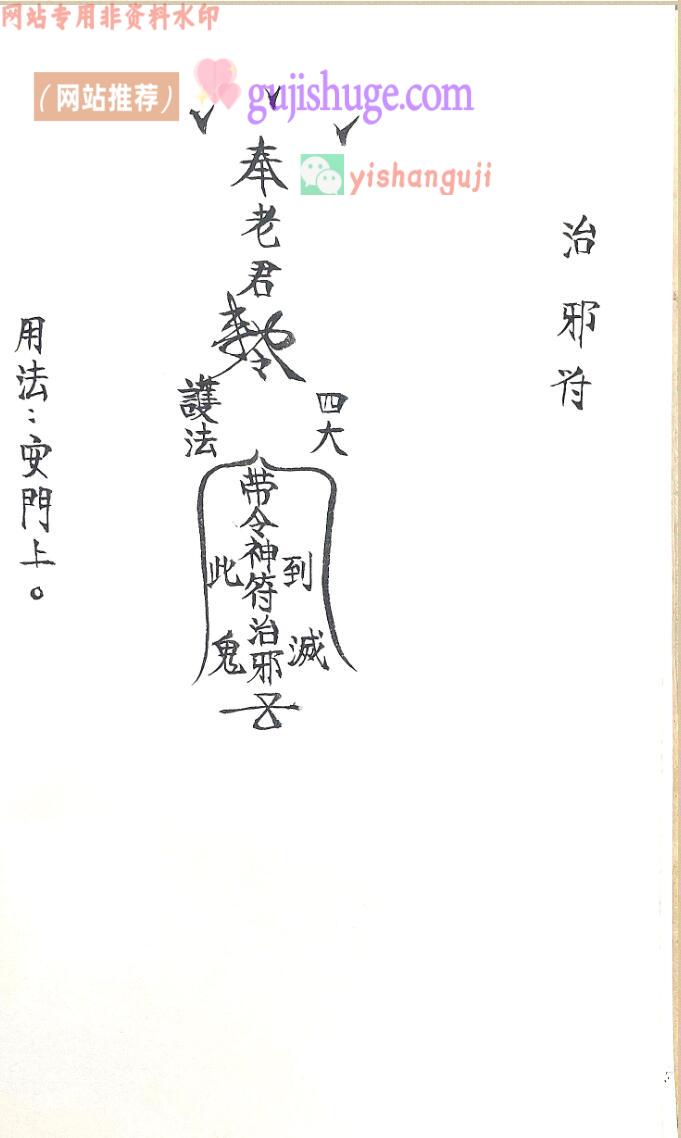 网站专用非资料水印
（网站推荐）
gujishuge.com
yishanguji
治邪符
奉老君
敕令
四大
護法
带令神符治邪
到此
滅鬼
用法：安門上。